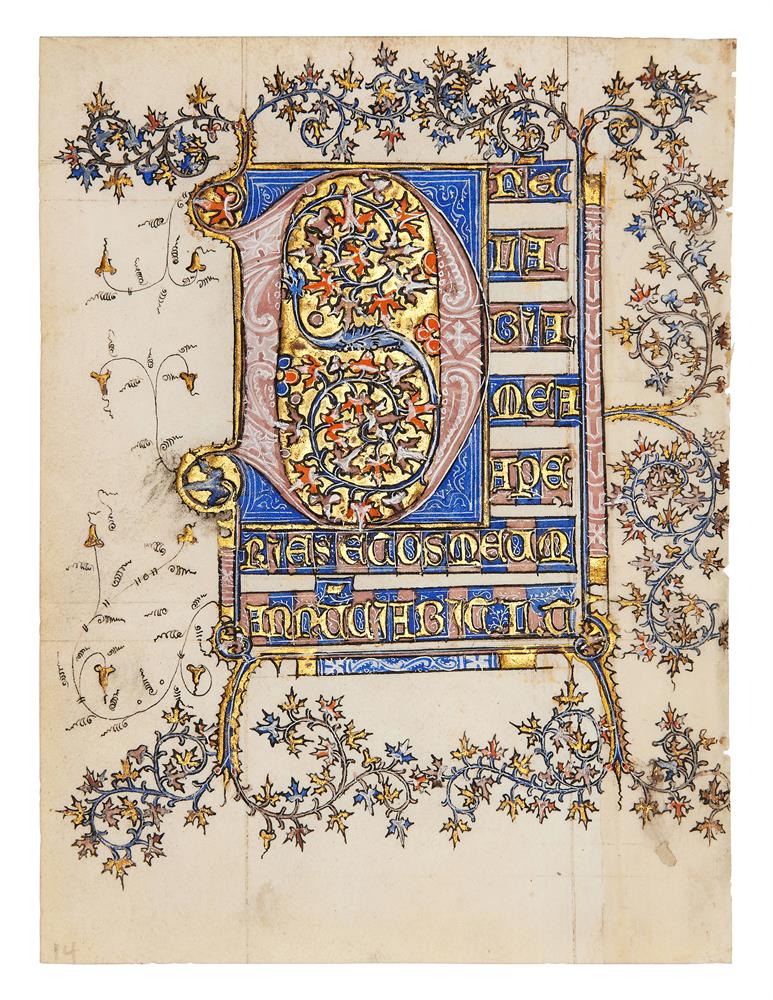 DÑE
LA
BIA
MEA
APE
RIES ET OS MEUM
ANNŪCIABIT. L. T
14